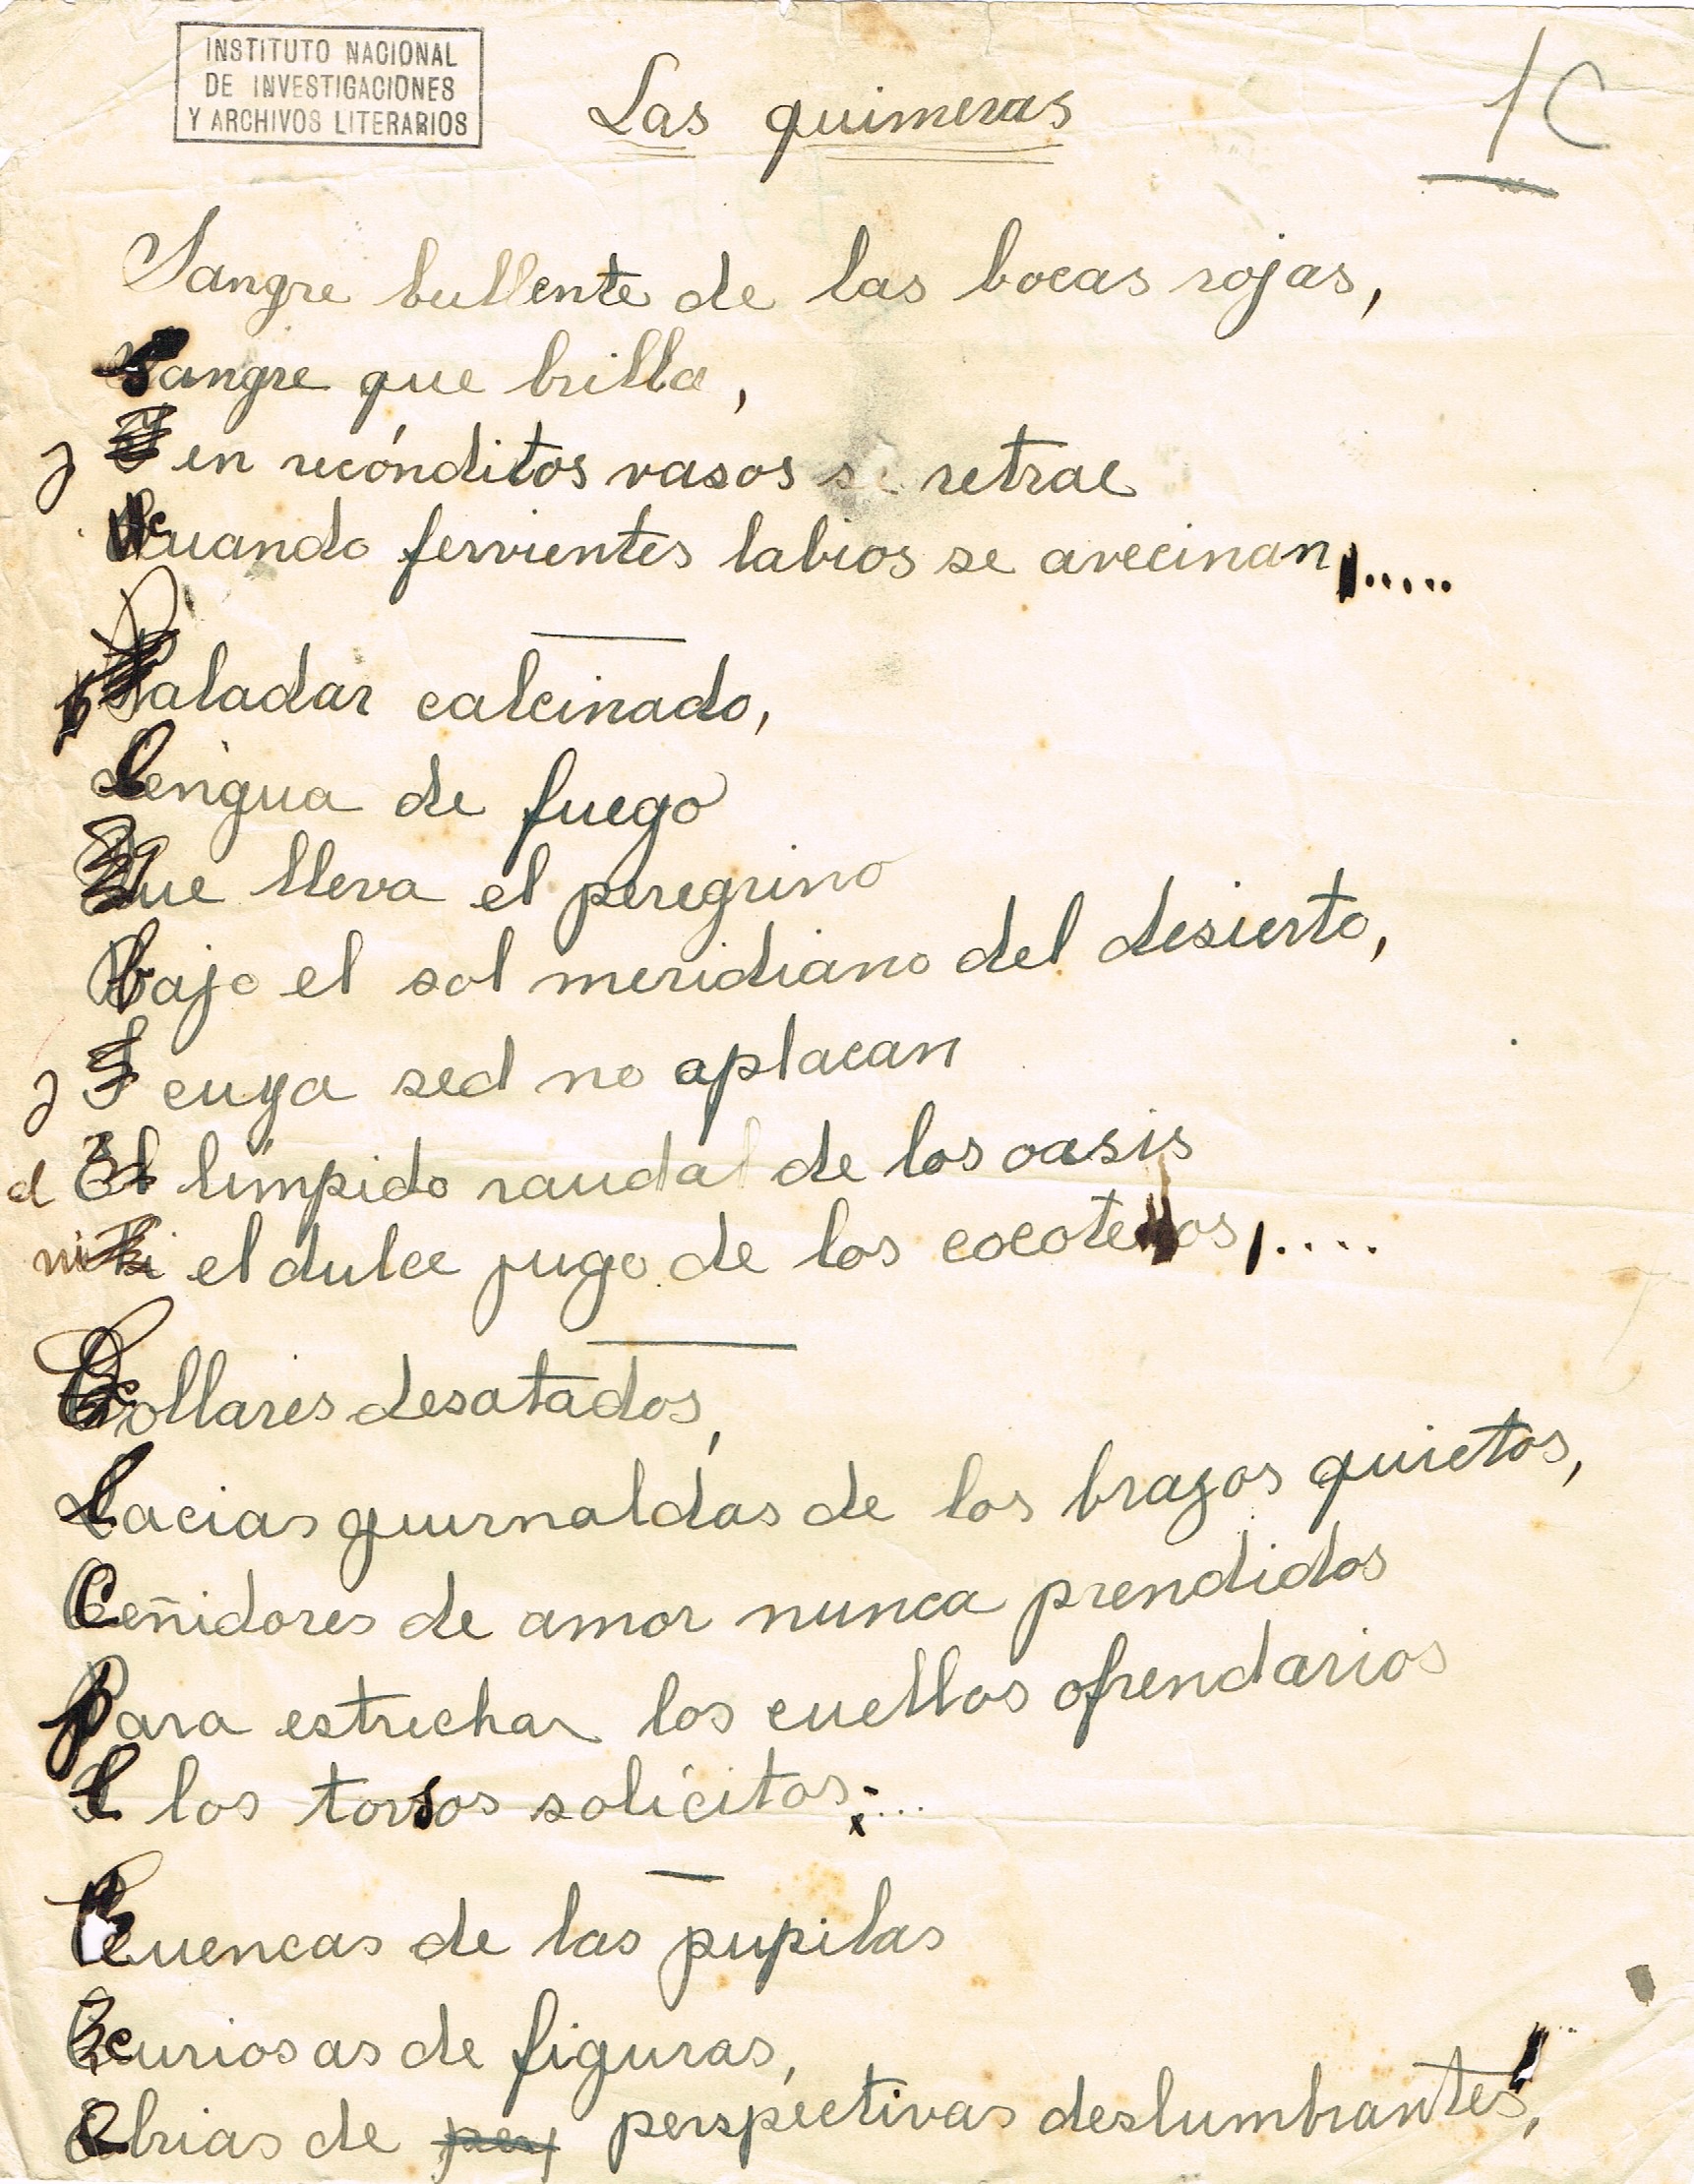 INSTITUTO NACIONAL
DE INVESTIGACIONES
Y ARCHIVOS LITERARIOS
Las quimeras
1C
Sangre bullente de las bocas rojas,
sangre que brilla,
y en recónditos vasos se retrae
cuando fervientes labios se avecinan,.....
paladar calcinado,
lengua de fuego
que lleva el peregrino
bajo el sol meridiano del desierto,
y cuya sed no aplacan
el límpido raudal de los oasis
ni el dulce jugo de los cocoteros,....
collares desatados,
lacias guirnaldas de los brazos quietos,
ceñidores de amor nunca prendidos
para estrechar los cuellos ofrendarios
e los torsos solícitos;...
cuencas de las pupilas
curiosas de figuras,
ebrias de perspectivas deslumbrantes,